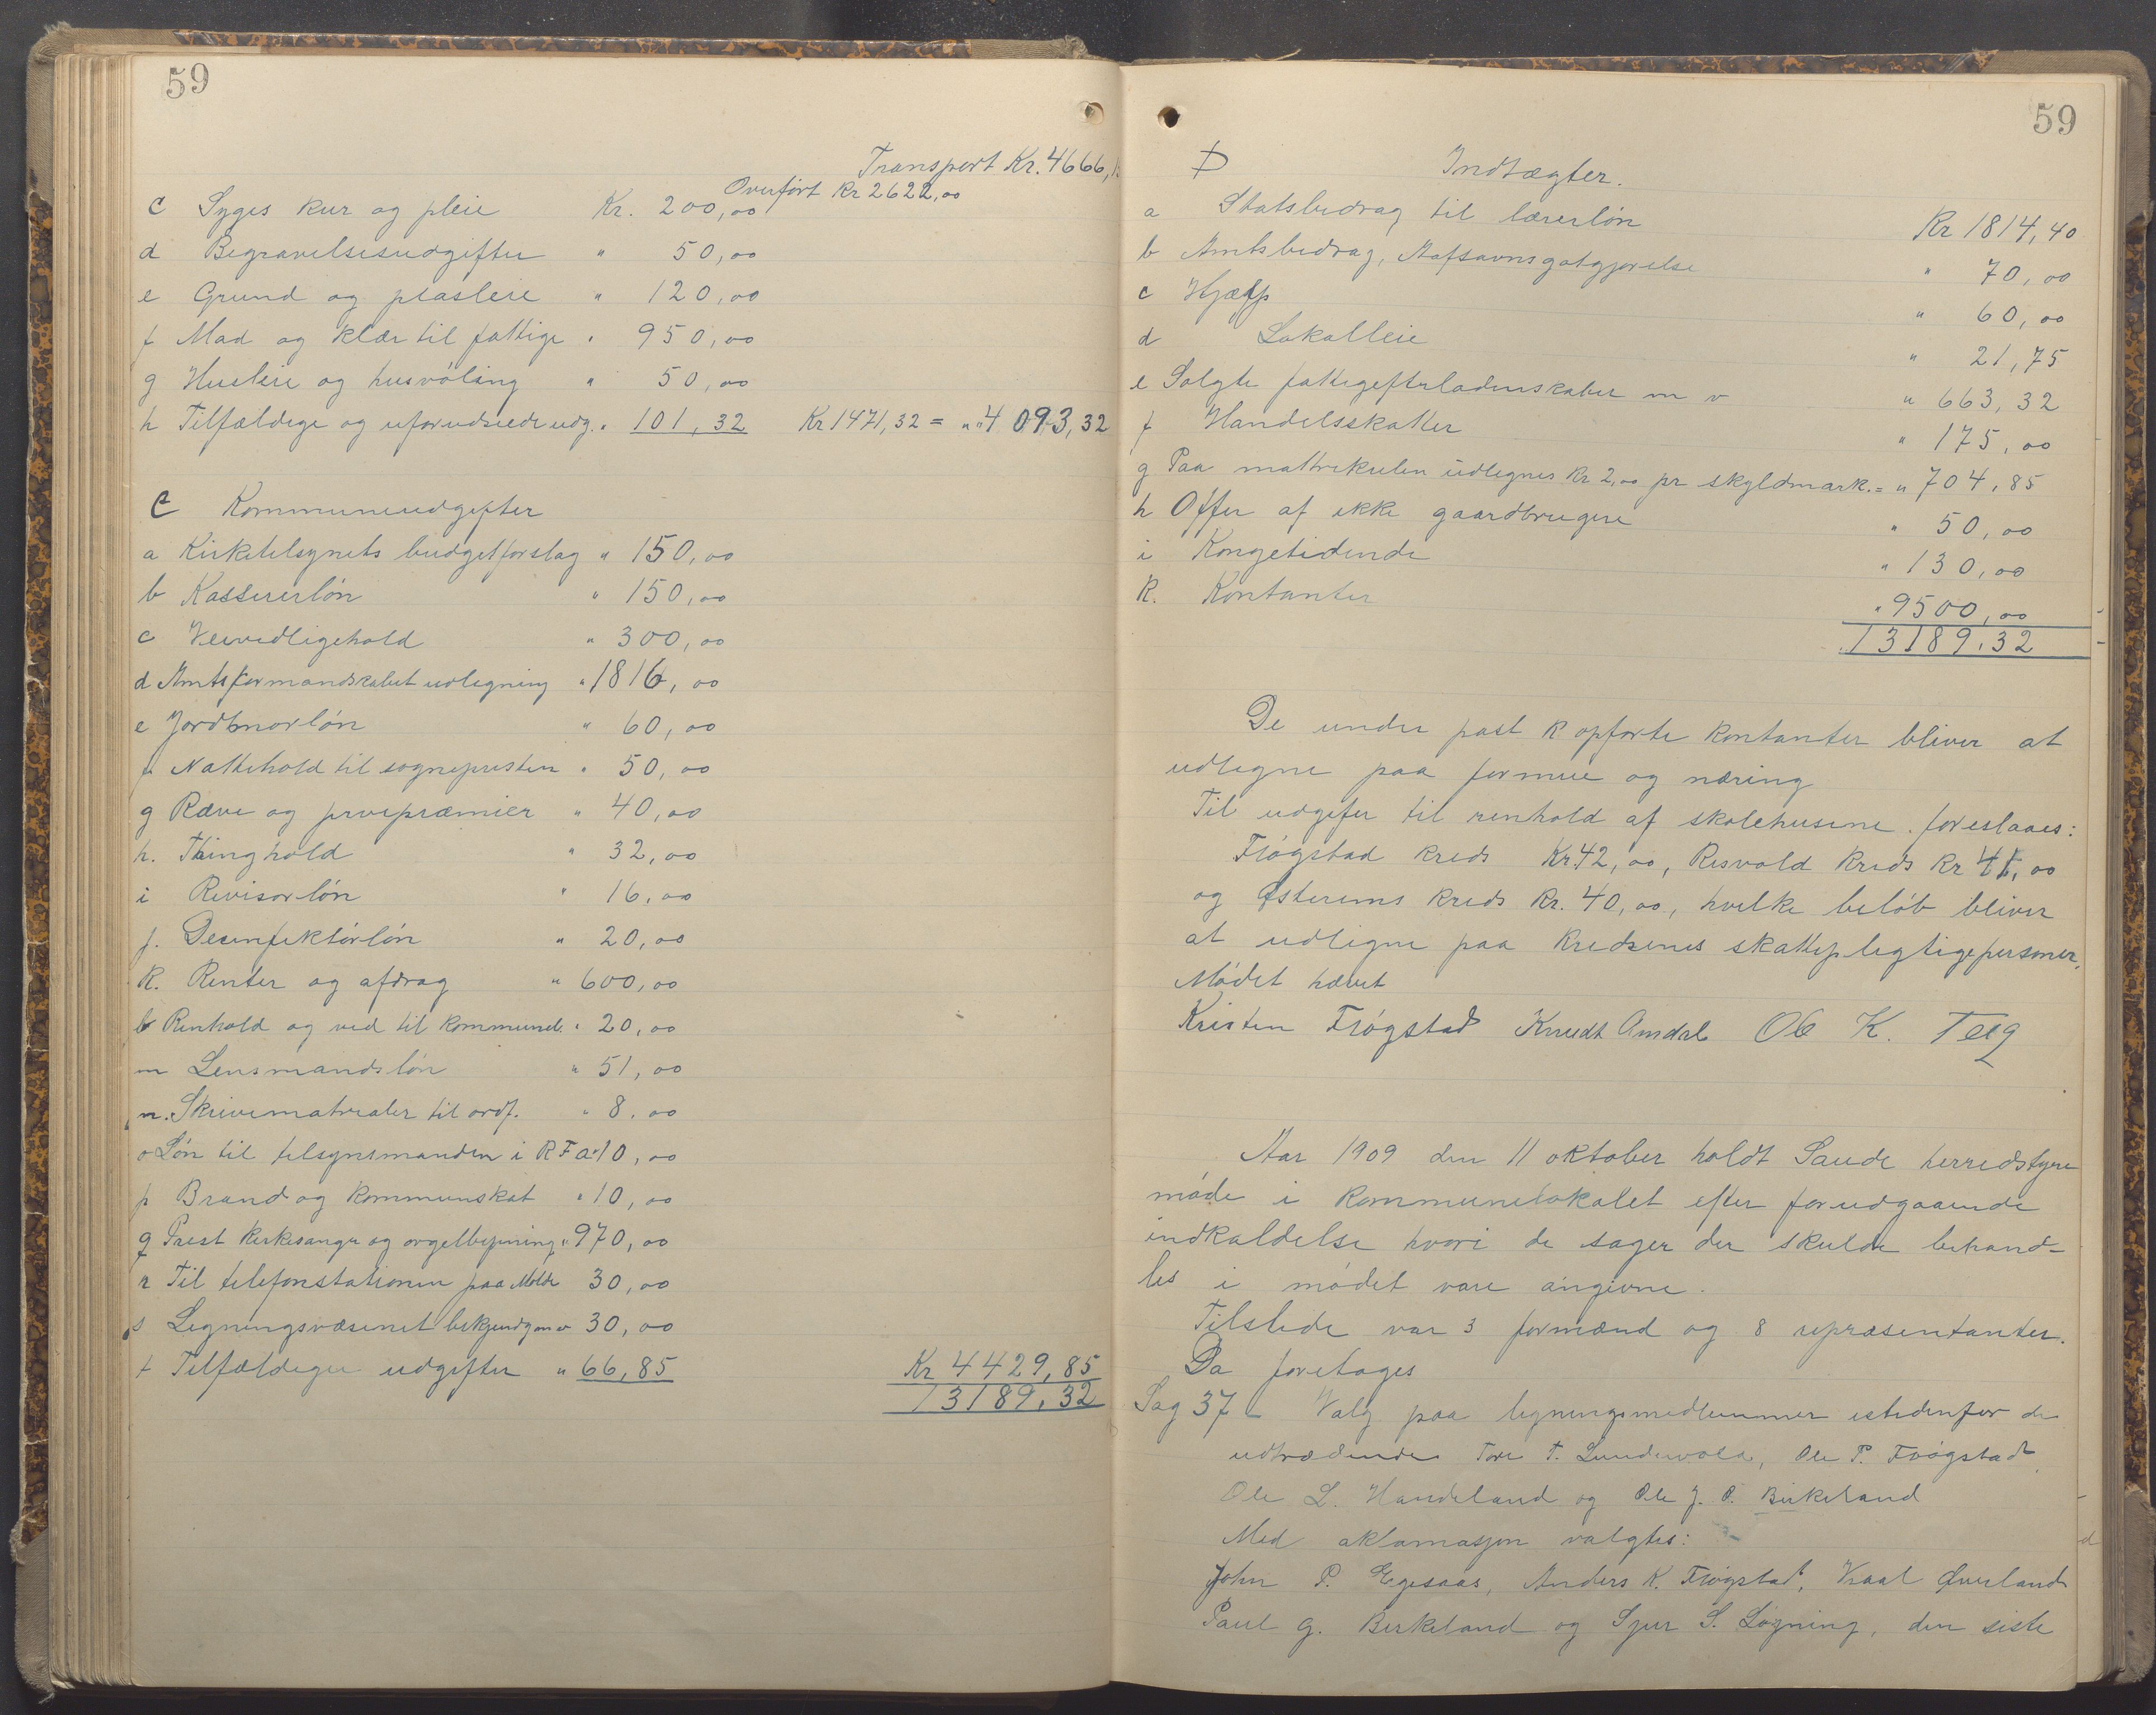 59
Transport Kr. 4666,1
Overført Kr 2622,00
c Syges kur og pleie Kr. 200,00
d Begravelsesudgifter " 50,00
e Grund og plasleie " 120,00
f Mad og klær til fattige " 950,00
g Husleie og husvøling " 50,00
h Tilfældige og uforudseede udg. " 101,32 Kr 1471,32 = " " 4093,32
C Kommuneudgifter
a Kirketilsynets budgetforslag " 150,00
b Kassererløn " 150,00
c Veivedligehold " 300,00
d Amtsformandskabet udligning " 1816,00
e Jordmorløn " 60,00
f Nattehold til sognepresten " 50,00
g Ræve og præmier " 40,00
h. Thinghold " 32,00
i Revisorløn " 16,00
j. Desinfektørløn " 20,00
k. Renter og afdrag " 600,00
l Renhold og ved til kommunel. " 20,00
m Lensmandsløn " 51,00
n. Skrivematrialer til ordf. " 8,00
o Løn til tilsynsmanden i R F a " 10,00
p Brand og kommunskat " 10,00
q Prest kirkesanger og orgelbetjening " 970,00
r Til telefonstationen paa Molde 30,00
s Ligningsvæsenet bekjendg m v 30,00
t Tilfældige udgifter " 66,85 Kr 4429,85
13189,32
59
D Indtægter.
a Statsbidrag til lærerløn Kr 1814,40
b Amtsbidrag, Aafsavnsgotgjørelse " 70,00
c Hjælp " 60,00
d Lokalleie " 21,75
e Solgte fattigefterladenskaber m v " 663,32
f Handelsskatter " 175,00
g Paa mattrikulen udlignes Kr 2,00 pr skyldmark. = " 704,85
h Offer af ikke gaardbrugere " 50,00
i Kongetidende " 130,00
k. Kontanter " 9500,00
13189,32
De under post k opførte kontanter bliver at
udligne paa formue og næring
Til udgifer til renhold af skolehusene foreslaaes:
Frøgstad kreds Kr. 42,00, Risvold kreds Kr 41,00
og Østerems kreds Kr. 40,00, hvilke beløb bliver
at udligne paa kredsenes skattepligtige personer.
Mødet hævet
Kristen Frøgstad Knudt Amdal Ole K. Teig
Aar 1909 den 11 oktober holdt Saude herredstyre
møde i kommunelokalet efter forudgaaende
indkaldelse hvori de sager der skulde behand-
les i mødet vare angivne.
Tilstede var 3 formænd og 8 repræsentanter.
Da foretages
Sag 37 Valg paa ligningsmedlemmer istedenfor de
udtrædende Tore T. Lundevold, Ole P. Frøgstad
Ole L. Handeland og Ole J. P. Birkeland
Med aklamasjon valgtes:
John P. Egesaas, Anders K. Frøgstad, Øverland
Paul G. Birkeland og Sjur S. Løgning, den siste